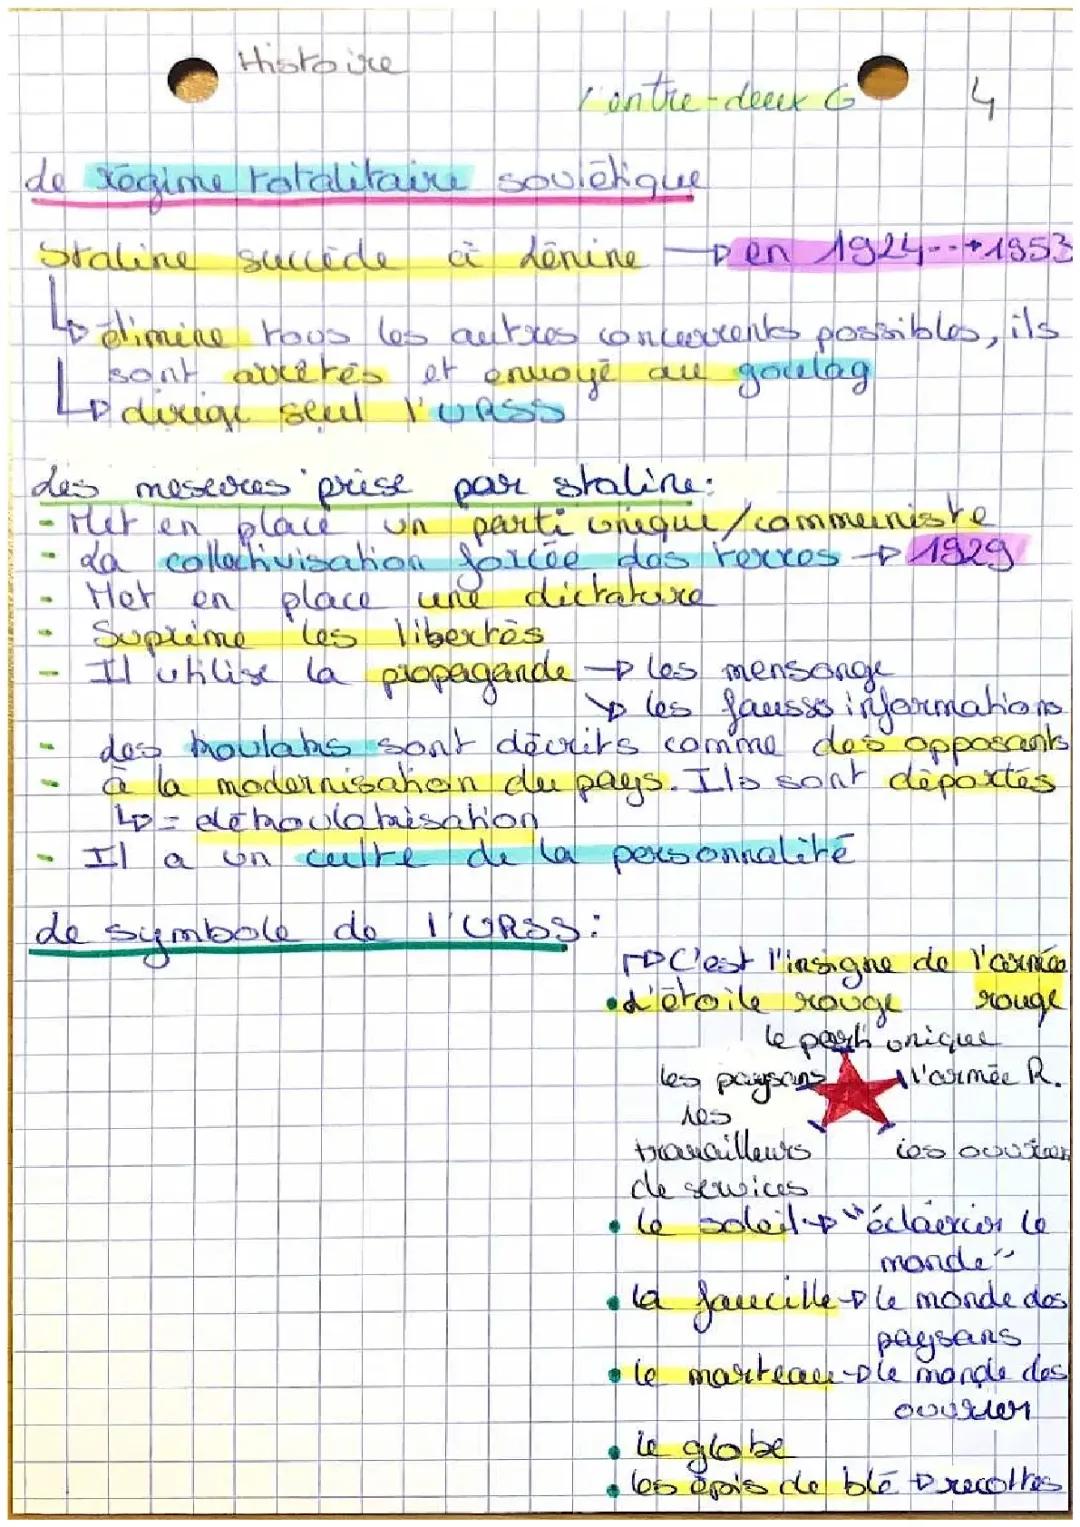 Histoire
l'entre-deux G 4
Le régime totalitaire soviétique
Staline succède à Lénine → en 1924--→1953
↳ élimine tous les autres concurrents possibles, ils
sont arrêtés et envoyé au goulag
↳ dirige seul l'URSS
Les mesures prise par staline:
- Met en place un parti unique/communiste
- La collectivisation forcée des terres → 1929
- Met en place une dictature
- Suprime les libertés
- Il utilise la propagande → les mensonge
↘ les fausse informations
- Les koulaks sont décrits comme des opposants
- à la modernisation du pays. Ils sont déportés
↳ = dékoulakisation
- Il a un culte de la personnalité
Le symbole de l'URSS:
→ C'est l'insigne de l'armée
• L'étoile rouge rouge
le parti unique
les paysans l'armée R.
les
travailleurs les ouvriers
de services
• le soleil → "éclaircir le
monde"
• la faucille → le monde des
paysans
• le marteau → le monde des
ouvrier
• le globe
• les épis de blé → recoltes